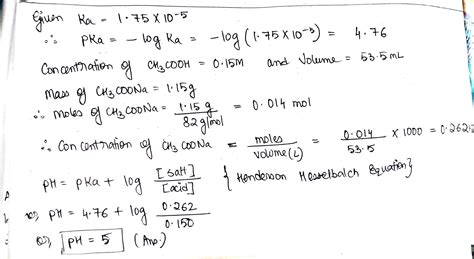 Given Ka = 1.75 X 10-5
∴ PKa = - log Ka = -log (1.75 X 10-5) = 4.76
Concentration of CH3COOH = 0.15M and Volume = 53.5mL
Mass of CH3COONa = 1.15g
∴ moles of CH3COONa = 1.15 g / 82 g/mol = 0.014 mol
∴ Concentration of CH3COONa = moles / volume(L) = 0.014 / 53.5 X 1000 = 0.262
PH = PKa + log [salt] / [acid] { Henderson Hesselbalch Equation }
PH = 4.76 + log 0.262 / 0.150
PH = 5 (Ans.)